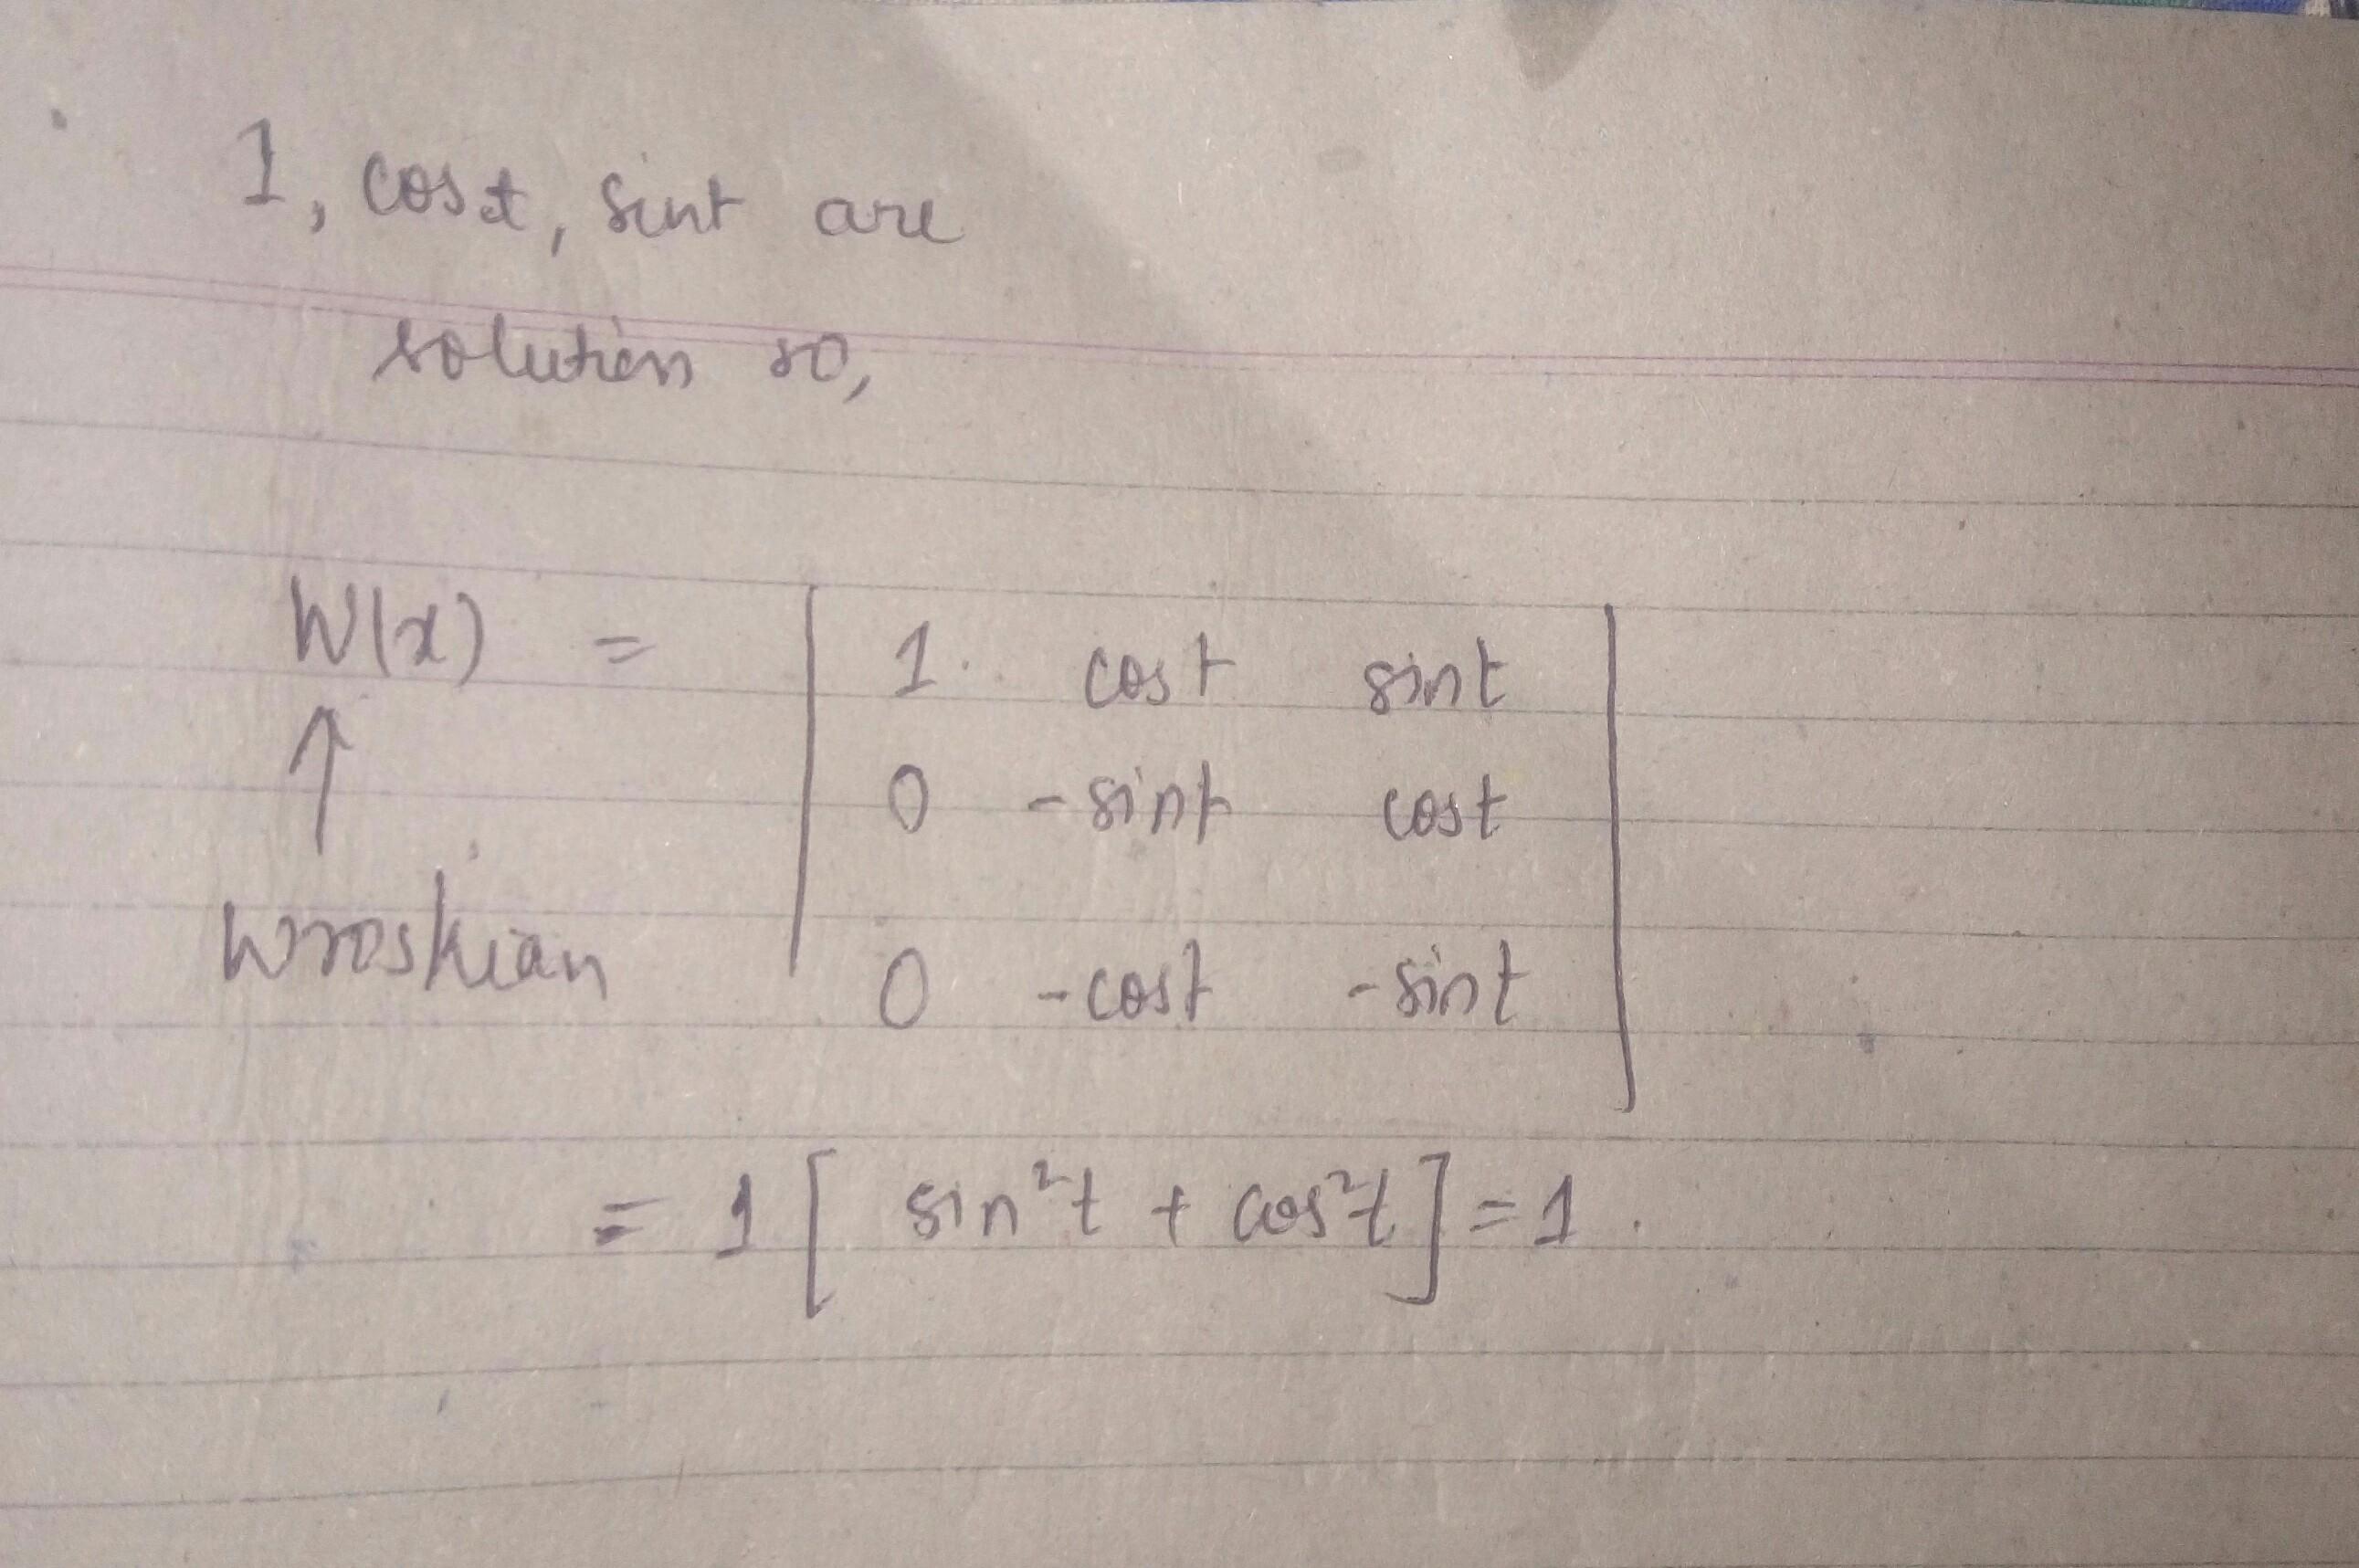 1, cost, sint are
solution so,
W(x) = | 1. cost sint |
↑ | 0 -sint cost |
Wroskian | 0 -cost -sint |
= 1 [ sin²t + cos²t ] = 1 .